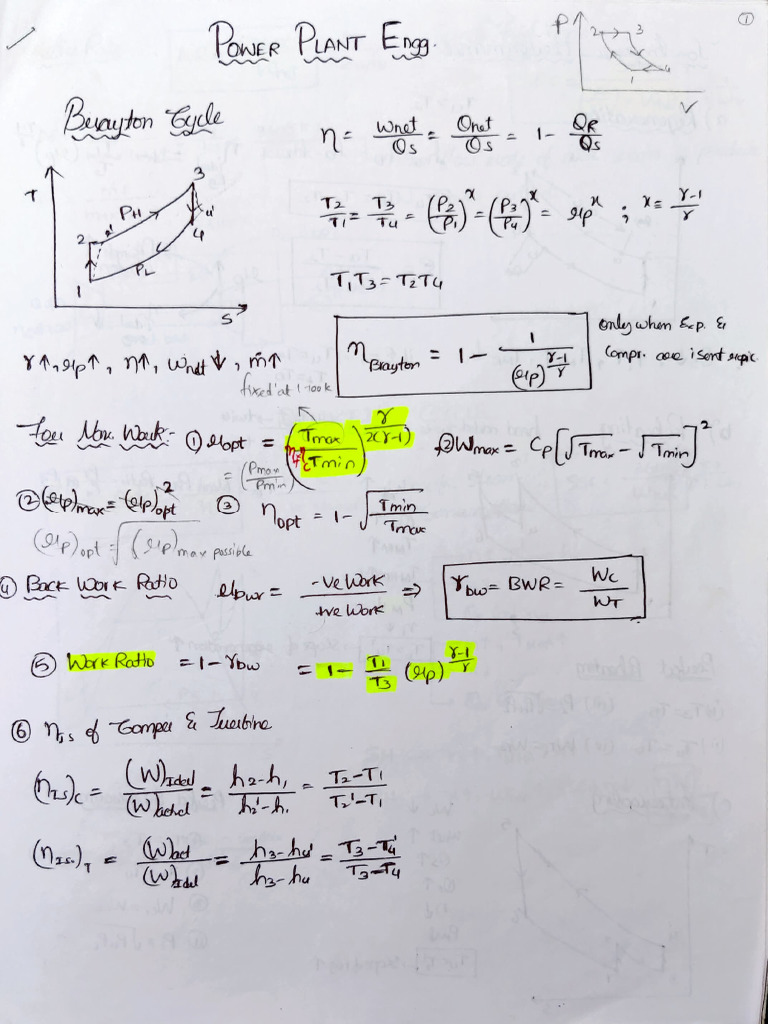 ①
POWER PLANT Engg.
P 2 3 1 4 V
Brayton Cycle
η = Wnet/Qs = Qnet/Qs = 1 - QR/Qs
T 3 PH 4' 2 2' 4 PL 1 S
T2/T1 = T3/T4 = (P2/P1)^x = (P3/P4)^x = rp^x ; x = (γ-1)/γ
T1T3 = T2T4
η Brayton = 1 - 1/(rp)^((γ-1)/γ)
only when Exp. &
Compr. are isentropic.
γ↑, rp↑, η↑, Wnet ↓, ṁ↑
fixed at
For Max. Work:- ① ropt = (Tmax/Tmin)^(γ/2(γ-1))
② Wmax = Cp[√Tmax - √Tmin]²
= (Pmax/Pmin)
② (rp)max = (rp)²opt
③ ηopt = 1 - √(Tmin/Tmax)
(rp)opt = √(rp)max possible
④ Back Work Ratio rbwr = -ve Work/+ve Work ⇒ rbw = BWR = Wc/WT
⑤ Work Ratio = 1 - rbw = 1 - T1/T3 (rp)^((γ-1)/γ)
⑥ ηIs of Compr & Turbine
(ηIs)c = (W)Ideal/(W)actual = (h2-h1)/(h2'-h1) = (T2-T1)/(T2'-T1)
(ηIs.)T = (W)act/(W)Ideal = (h3-h4')/(h3-h4) = (T3-T4')/(T3-T4)